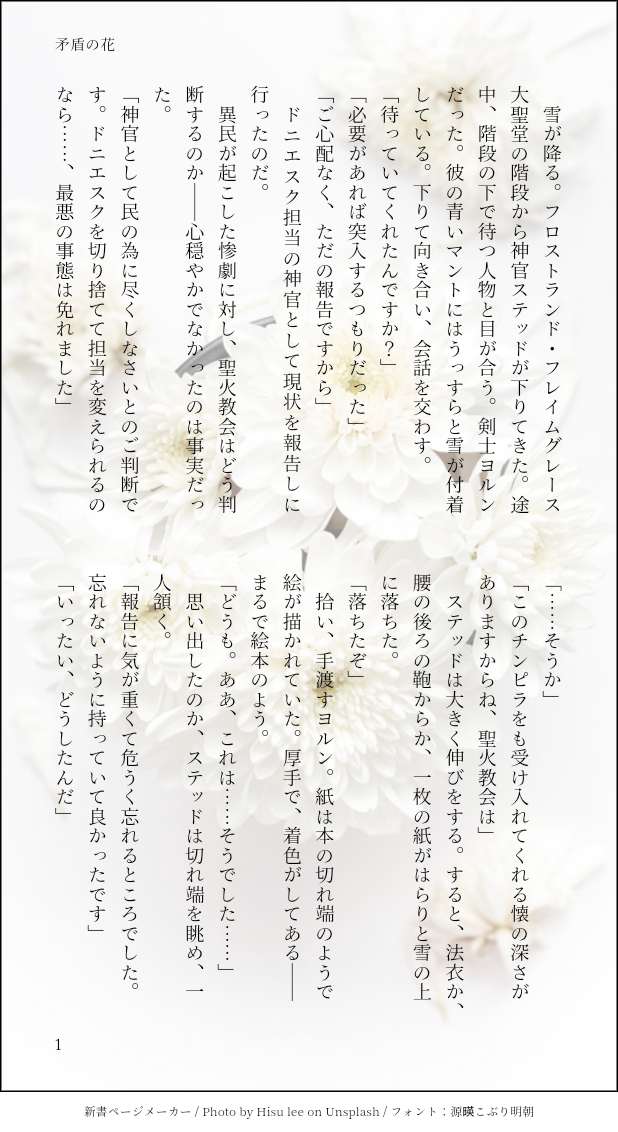 矛盾の花
　雪が降る。フロストランド・フレイムグレース
大聖堂の階段から神官ステッドが下りてきた。途
中、階段の下で待つ人物と目が合う。剣士ヨルン
だった。彼の青いマントにはうっすらと雪が付着
している。下りて向き合い、会話を交わす。
「待っていてくれたんですか？」
「必要があれば突入するつもりだった」
「ご心配なく、ただの報告ですから」
　ドニエスク担当の神官として現状を報告しに
行ったのだ。
　異民が起こした惨劇に対し、聖火教会はどう判
断するのか――心穏やかでなかったのは事実だっ
た。
「神官として民の為に尽くしなさいとのご判断で
す。ドニエスクを切り捨てて担当を変えられるの
なら……、最悪の事態は免れました」
「……そうか」
「このチンピラをも受け入れてくれる懐の深さが
ありますからね、聖火教会は」
　ステッドは大きく伸びをする。すると、法衣か、
腰の後ろの鞄からか、一枚の紙がはらりと雪の上
に落ちた。
「落ちたぞ」
　拾い、手渡すヨルン。紙は本の切れ端のようで
絵が描かれていた。厚手で、着色がしてある――
まるで絵本のよう。
「どうも。ああ、これは……そうでした……」
　思い出したのか、ステッドは切れ端を眺め、一
人頷く。
「報告に気が重くて危うく忘れるところでした。
忘れないように持っていて良かったです」
「いったい、どうしたんだ」
1
新書ページメーカー / Photo by Hisu lee on Unsplash / フォント：源暎こぶり明朝